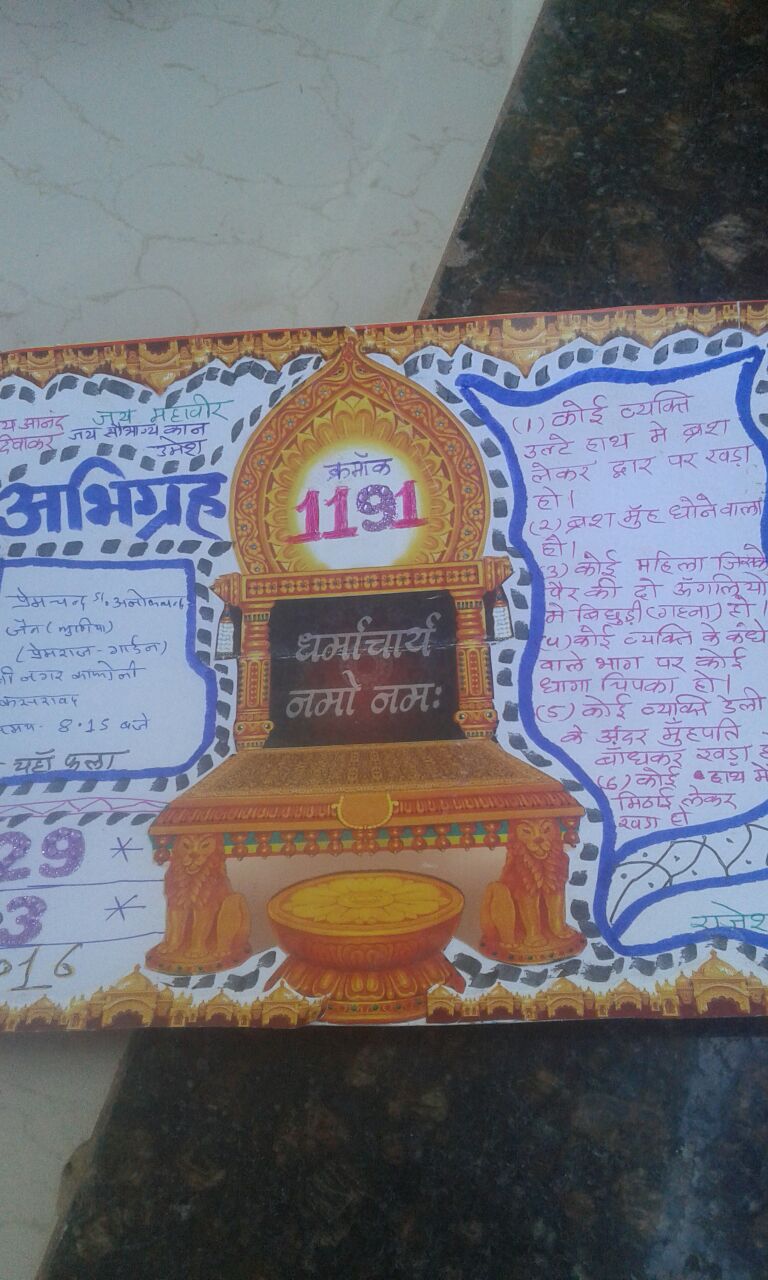 जय महावीर
य आनंद
दिवाकर
जय सौभाग्य कान
उमेश
अभिग्रह
प्रेमचन्द
जैन
(प्रेमराज - गार्डन)
नगर
8.15 बजे
यहाँ फला
29 *
3 *
016
क्रमाँक
1191
धर्माचार्य
नमो नमः
(1) कोई व्यक्ति
उल्टे हाथ मे ब्रश
लेकर द्वार पर खड़ा
हो।
(2) ब्रश मुँह धोने वाला
हो।
(3) कोई महिला जिसके
पैर की दो ऊँगलियो
मे बिछुड़ी (गहना) हो।
(4) कोई व्यक्ति के कंधे
वाले भाग पर कोई
धागा चिपका हो।
(5) कोई व्यक्ति डेली
के अंदर मुँहपति
बाँधकर खड़ा ह
(6) कोई हाथ मे
मिठाई लेकर
खड़ा हो
राजेश